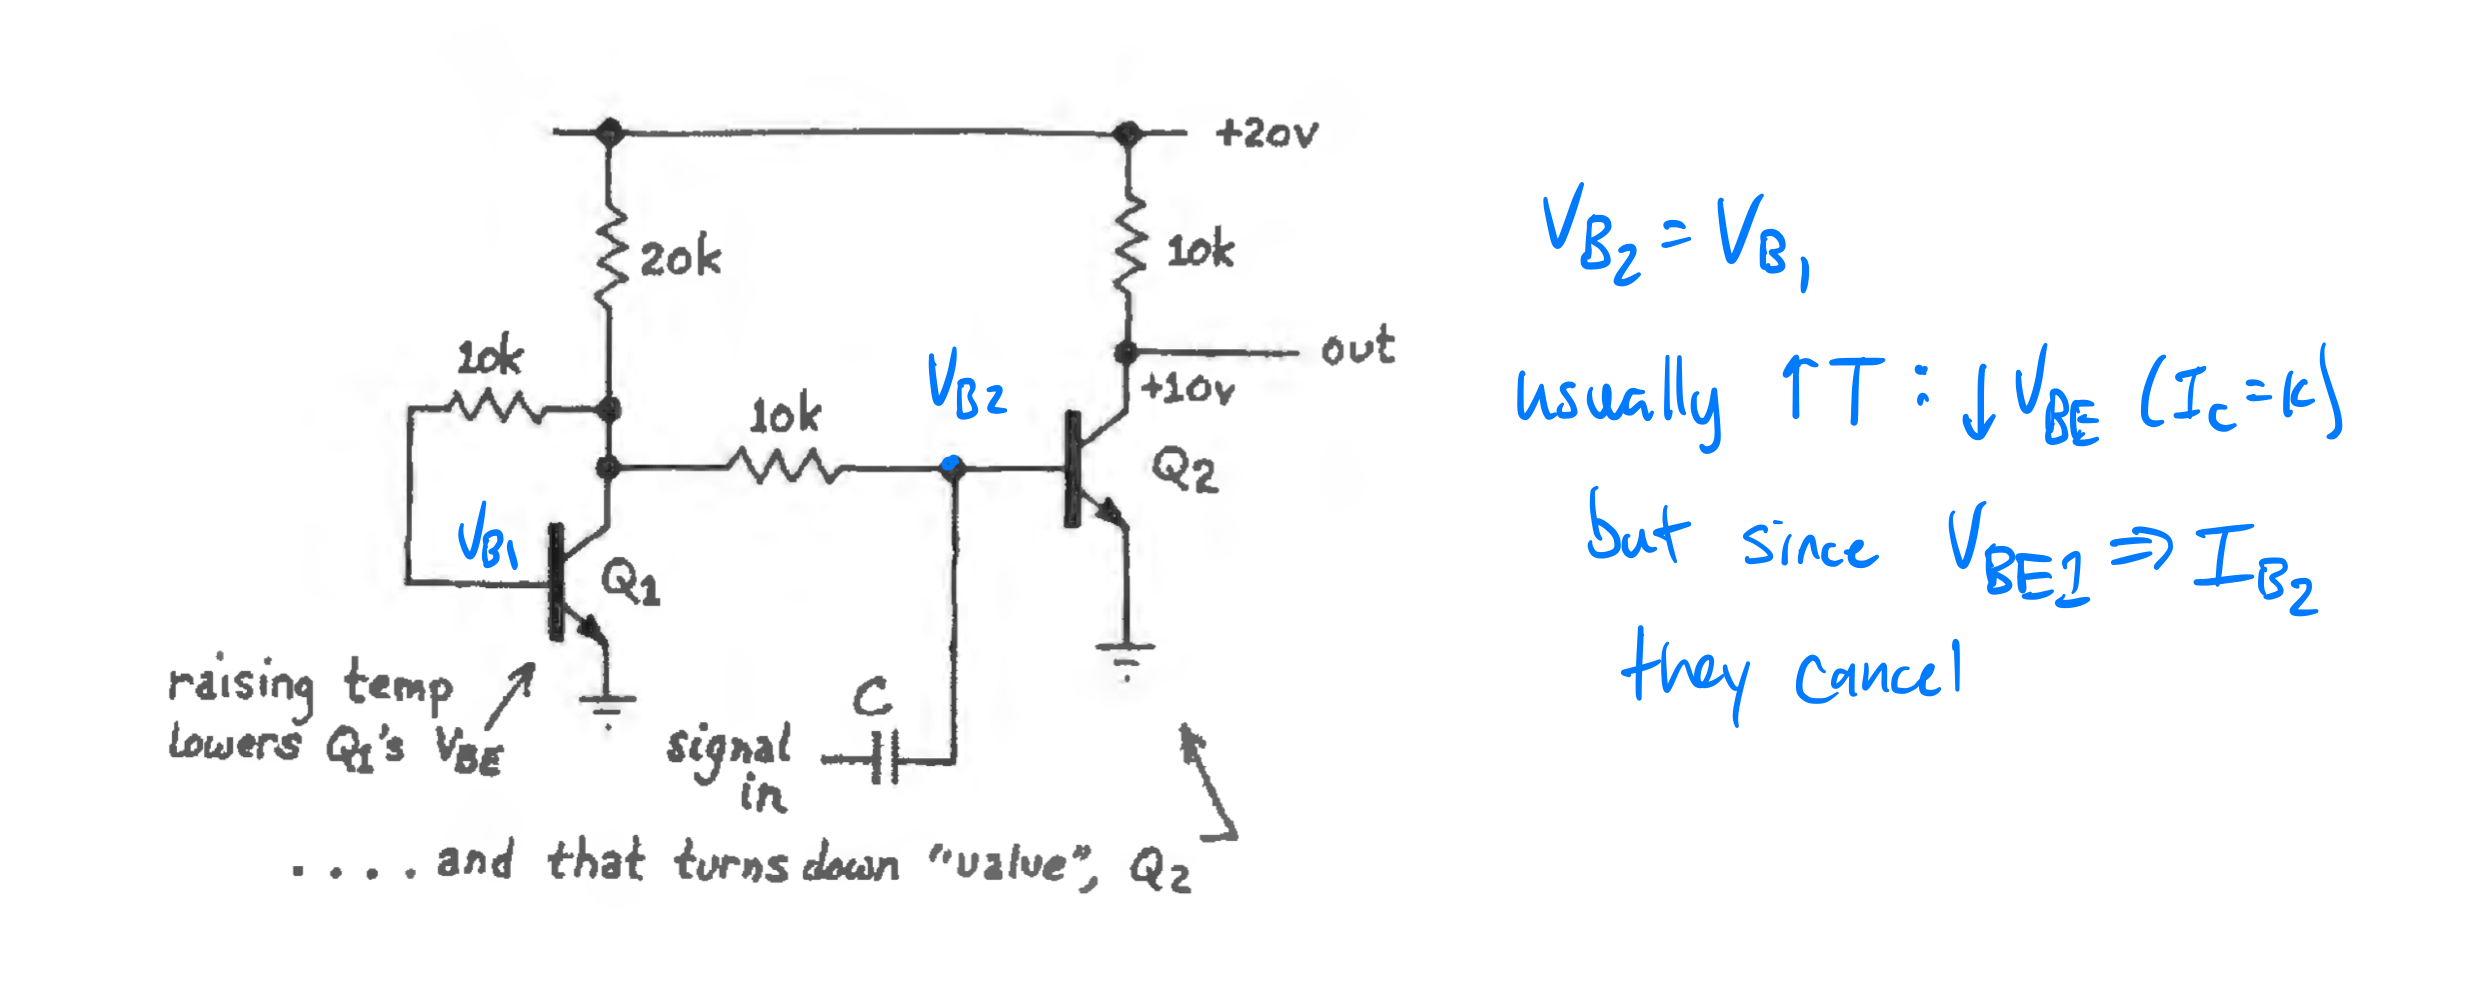 +20v
20k
10k
10k
10k
V_B2
out
+10v
Q2
V_B1
Q1
raising temp
lowers Q1's V_BE
C
signal
in
....and that turns down "value", Q2
V_B2 = V_B1
usually ↑T : ↓V_BE (I_C=K)
but since V_BE1 ⇒ I_B2
they cancel